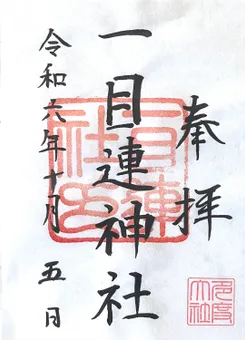 奉拝
一目連神社
令和六年十月五日